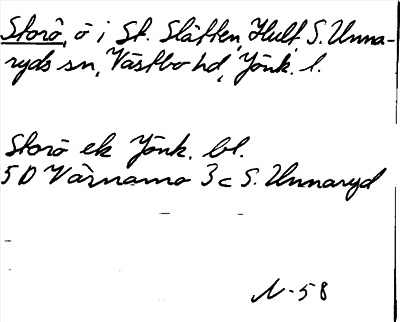 Storö, ö i St. Slätten, Hult, S. Unna-
ryds sn, Västbo hd, Jönk. l.
Storö ek Jönk. bl.
5D Värnamo 3c S. Unnaryd
N-58